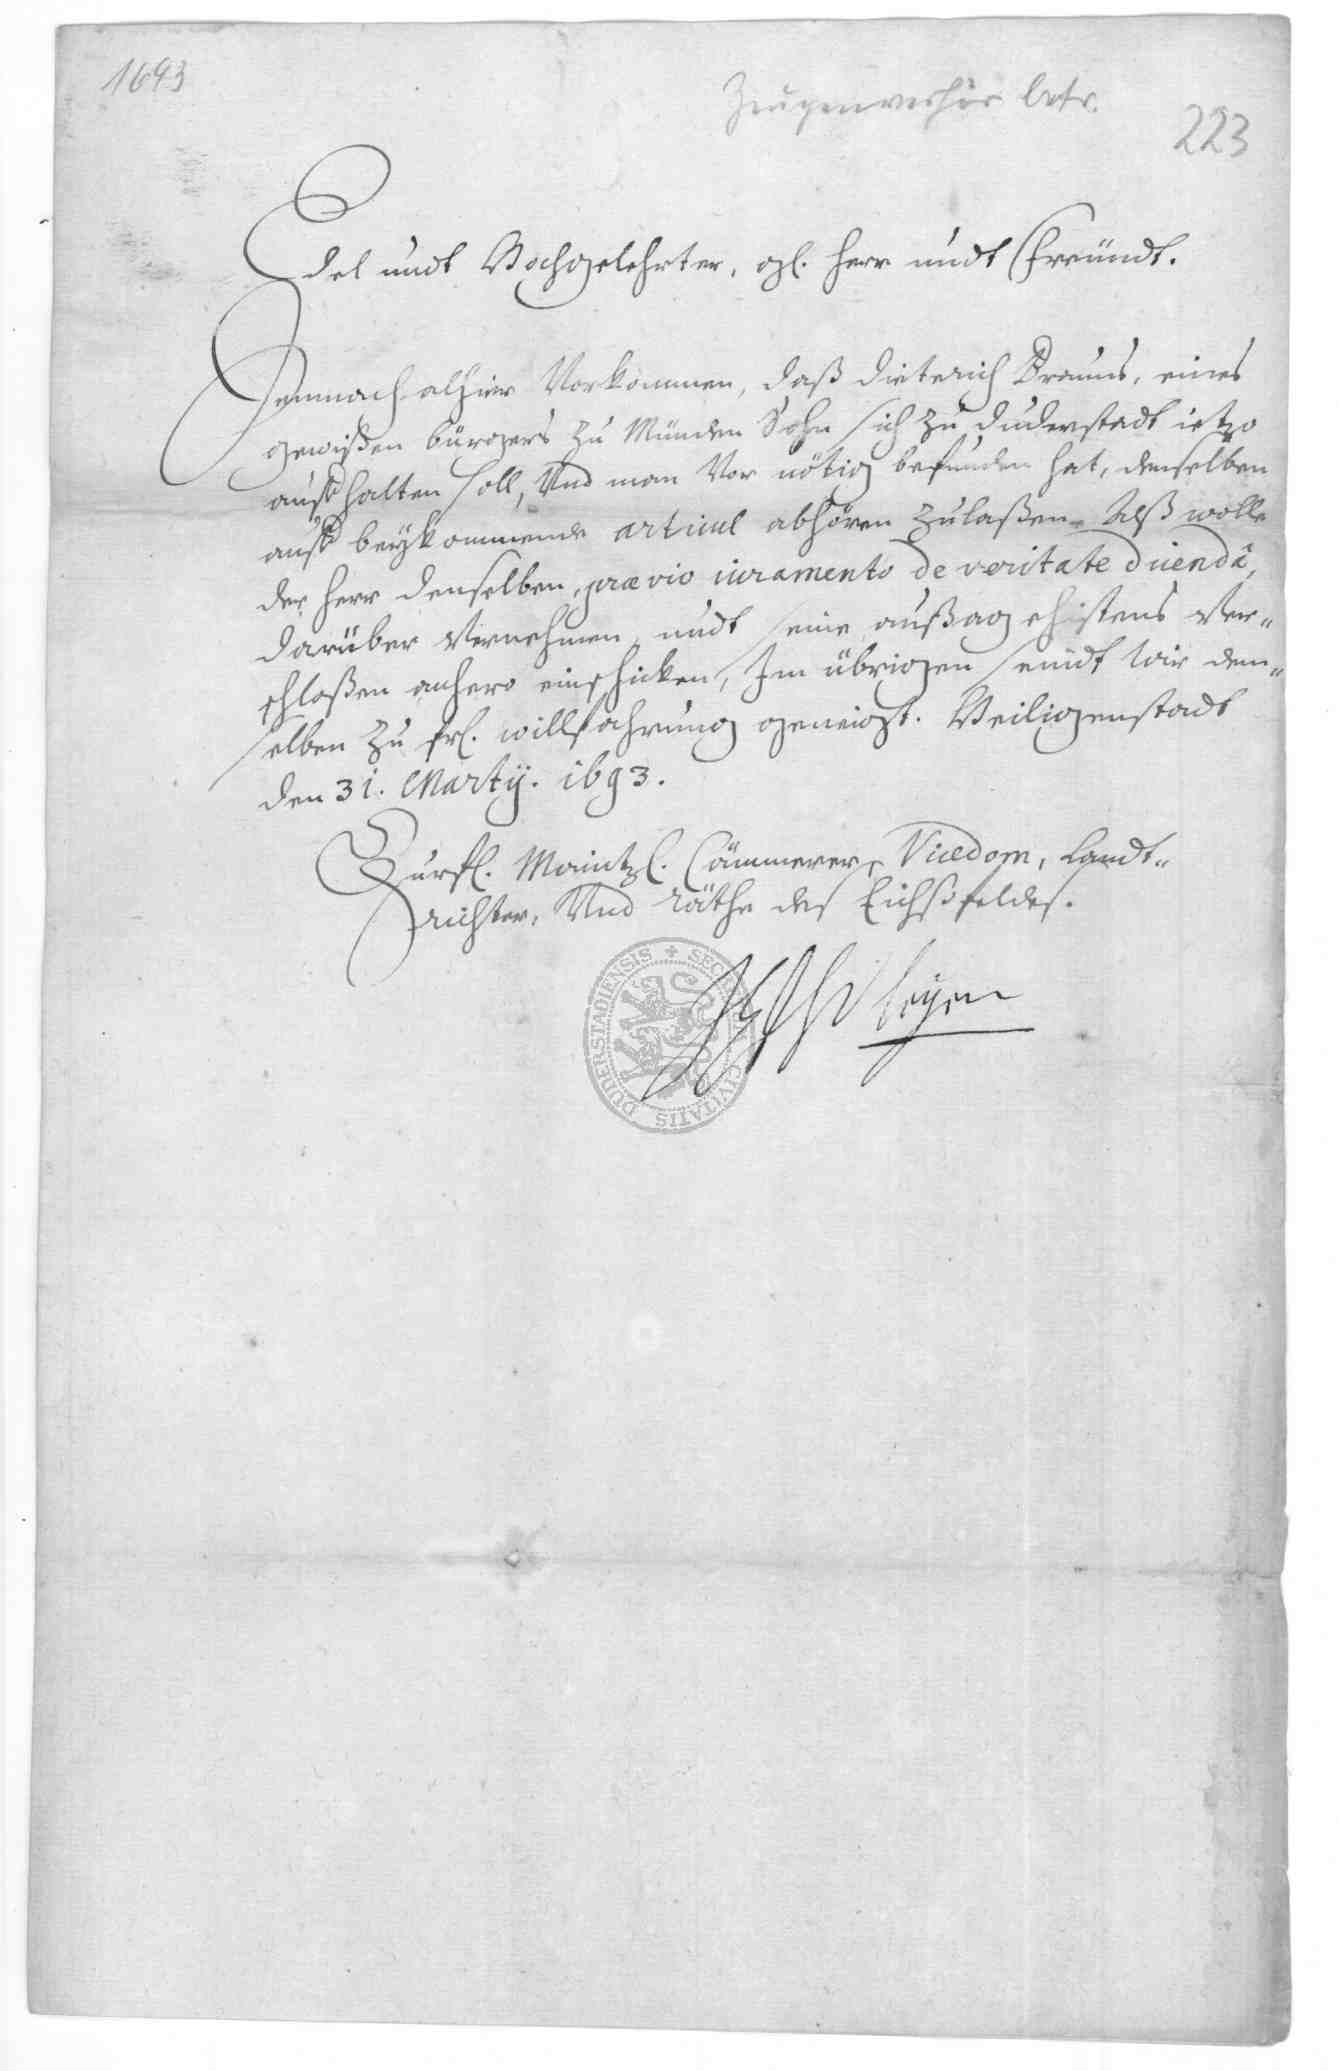 1693
Zeugenverhör betr.
223
Edel undt Hochgelehrter, gl. Herr undt Freündt.
Demnach alhier Vorkommen, daß Dieterich Brauns, eines
gewißen bürgers zu Münden Sohn sich zu Duderstadt ietzo
auffhalten soll, Und man Vor nötig befunden hat, denselben
auff beykommende articul abhören zulaßen. Alß wolle
der Herr denselben, prævio iuramento de veritate dicendâ,
darüber Vernehmen, undt seine außag ehistens Ver-
schloßen anhero einschicken, Im übrigen seindt wir dem-
selben zu frl. willfahrung geneigt. Heiligenstadt
den 31. Martÿ. 1693.
Churfl. Maintzl. Cämmerer, Vicedom, Landt-
richter, Und Räthe des Eichßfeldes.
SECRETUM CIVITATIS DUDERSTADIENSIS